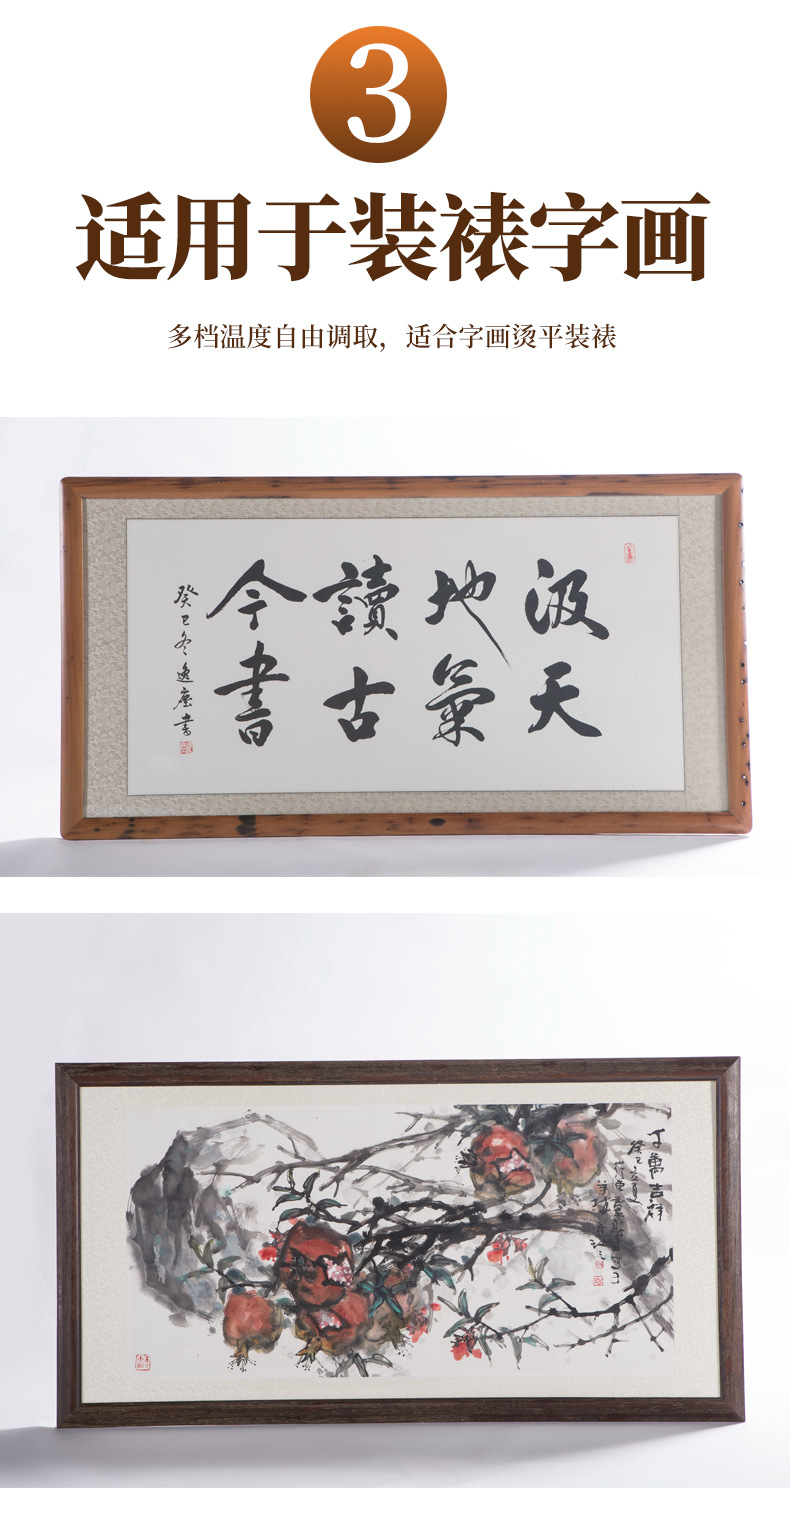 3
适用于装裱字画
多档温度自由调取，适合字画烫平装裱
汲天
地氣
讀古
今書
癸巳冬逸塵書
千萬吉祥
癸巳立夏